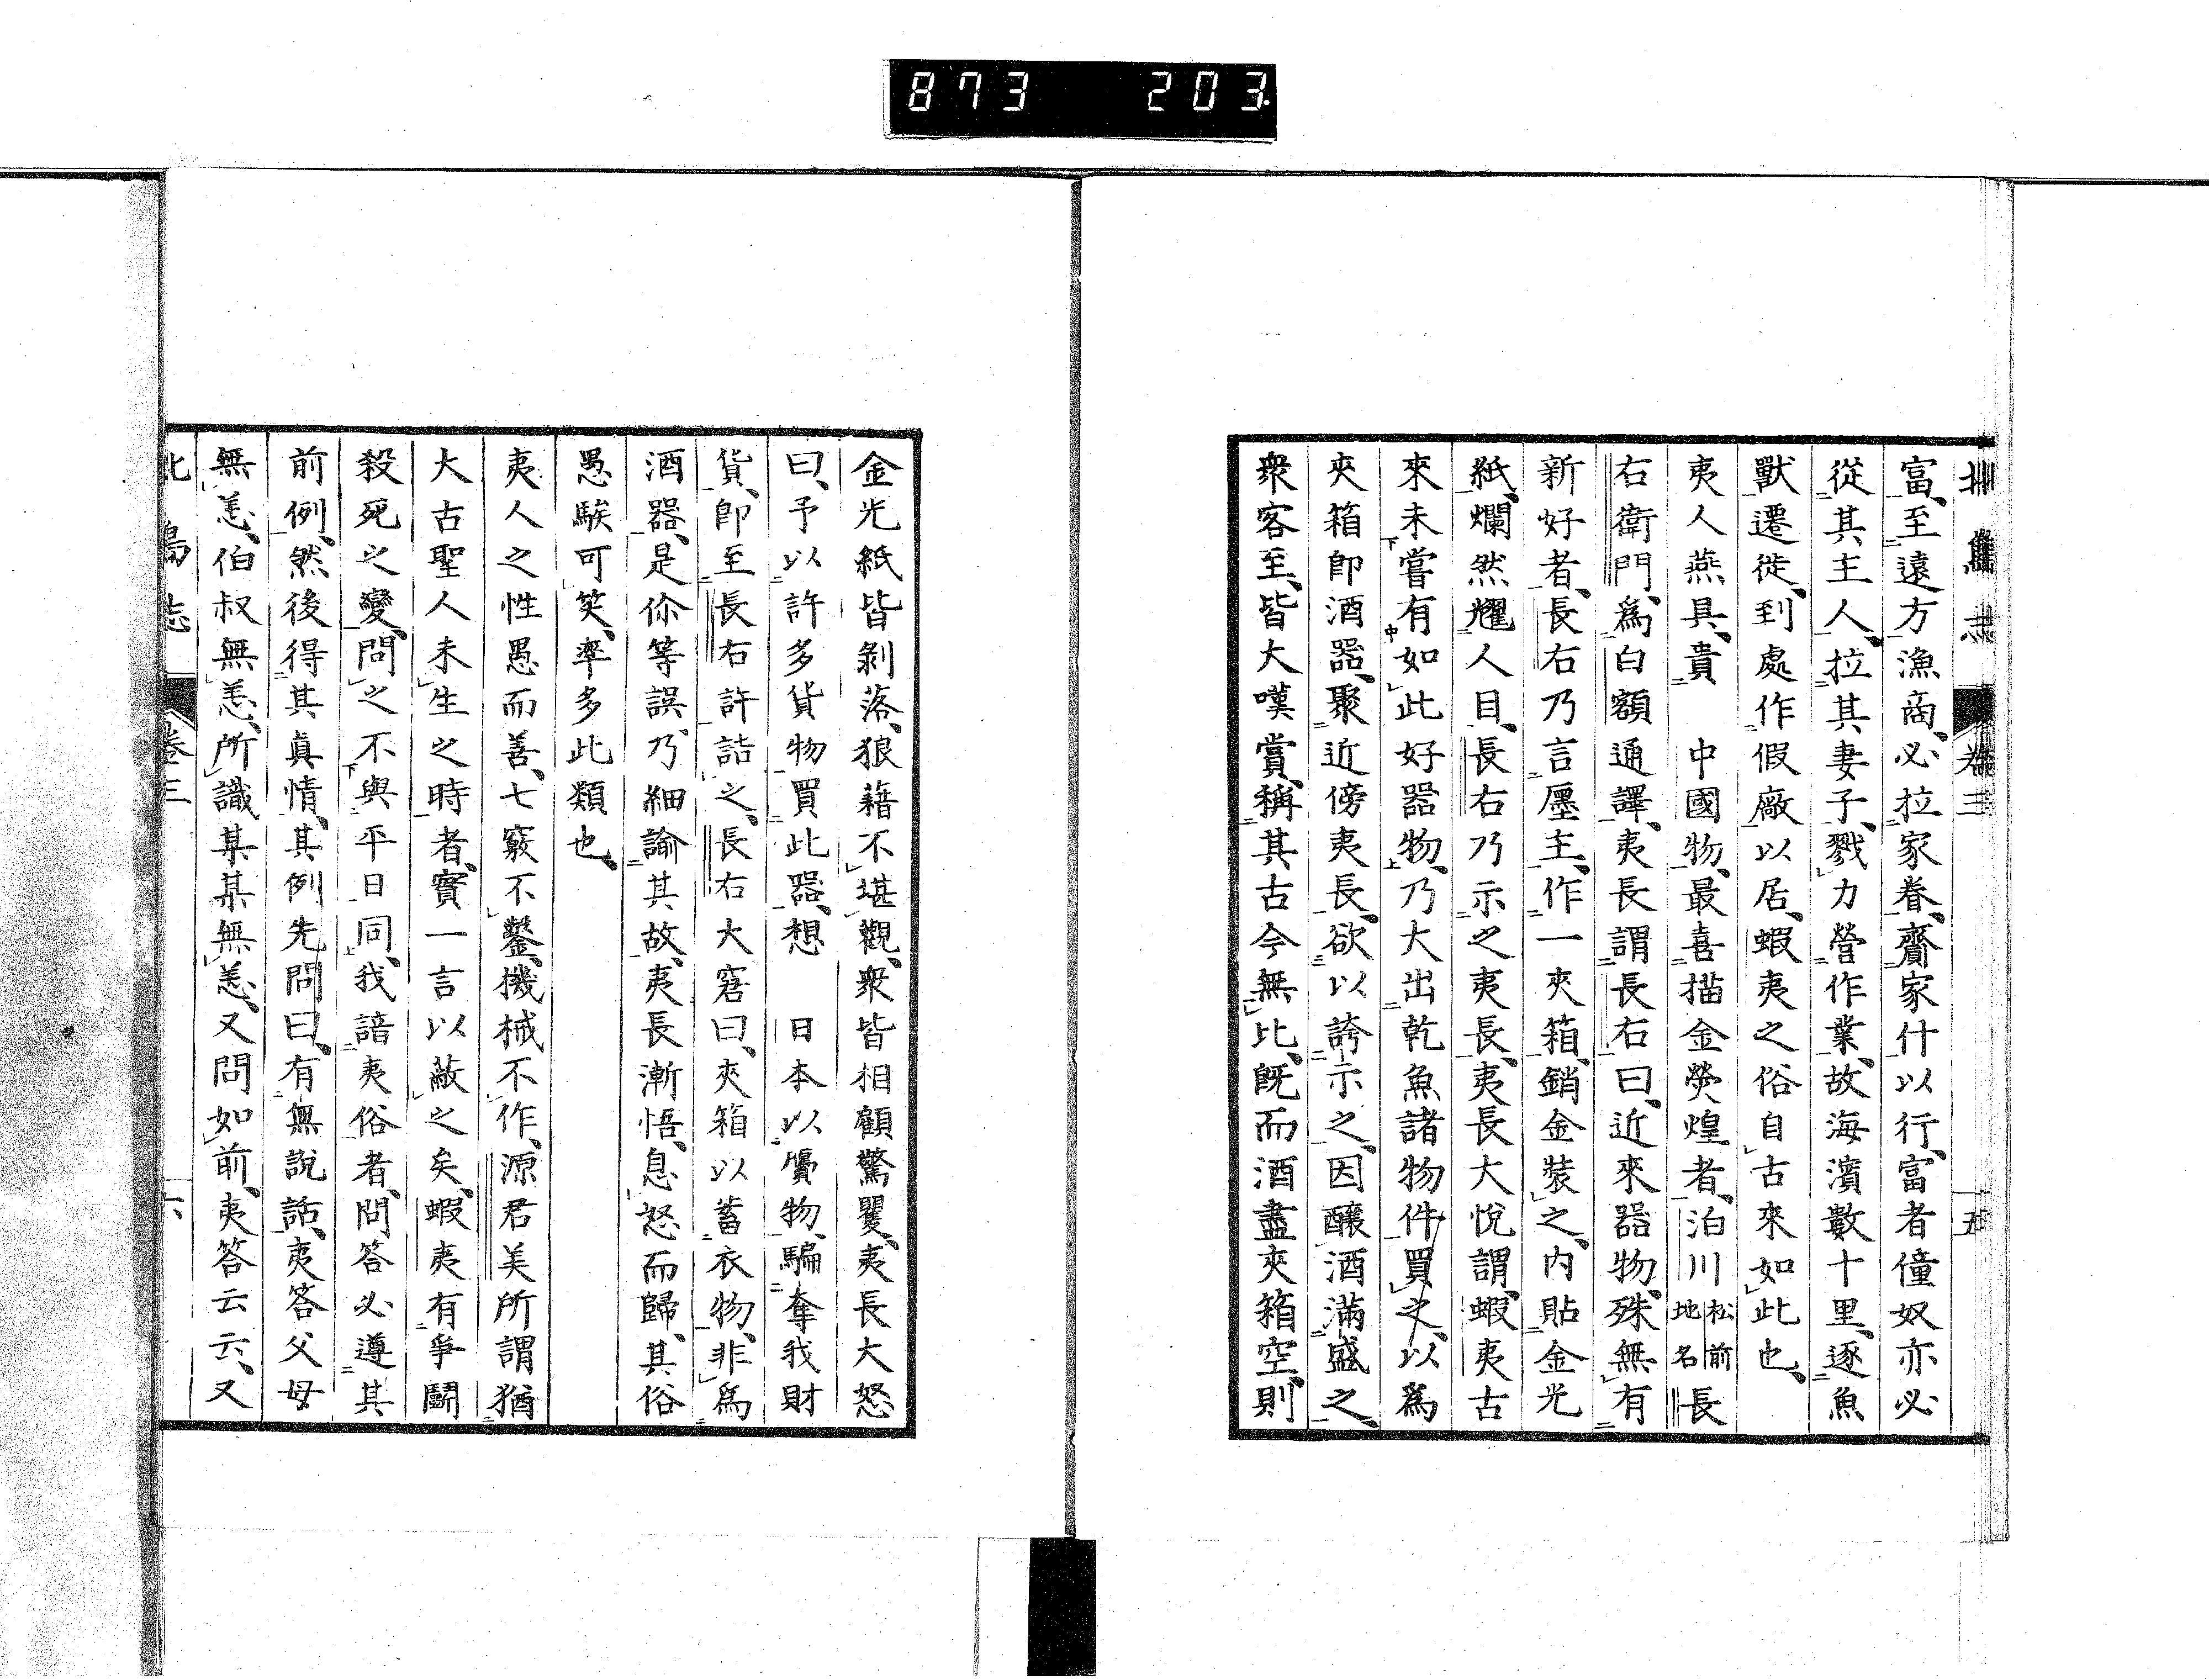 873 203
北島志 卷三 五
富、至遠方漁商、必拉家眷、齎家什以行、富者僮奴亦必
從其主人、拉其妻子、戮力營作業、故海濱數十里、逐魚
獸遷徙、到處作假廠以居、蝦夷之俗自古來如此也、
夷人燕具、貴 中國物、最喜描金熒煌者、泊川松前地名長
右衛門、爲白額通譯、夷長謂長右曰、近來器物、殊無有
新好者、長右乃言廛主、作一夾箱、銷金裝之、内貼金光
紙、爛然耀人目、長右乃示之夷長、夷長大悅謂、蝦夷古
來未嘗有如此好器物、乃大出乾魚諸物件買之、以爲
夾箱即酒器、聚近傍夷長、欲以誇示之、因釀酒滿盛之、
衆客至、皆大嘆賞、稱其古今無比、旣而酒盡夾箱空、則
金光紙皆剝落、狼藉不堪觀、衆皆相顧驚瞿、夷長大怒
曰、予以許多貨物買此器、想 日本以贋物、騙奪我財
貨、即至長右許詰之、長右大窘曰、夾箱以蓄衣物、非爲
酒器、是伱等誤、乃細諭其故、夷長漸悟、息怒而歸、其俗
愚騃可笑、率多此類也、
夷人之性愚而善、七竅不鑿、機械不作、源君美所謂猶
大古聖人未生之時者、實一言以蔽之矣、蝦夷有爭鬪
殺死之變、問之不與平日同、我諳夷俗者、問答必遵其
前例、然後得其眞情、其例先問曰、有無說話、夷答父母
無恙、伯叔無恙、所識某某無恙、又問如前、夷答云云、又
北島志 卷三 六